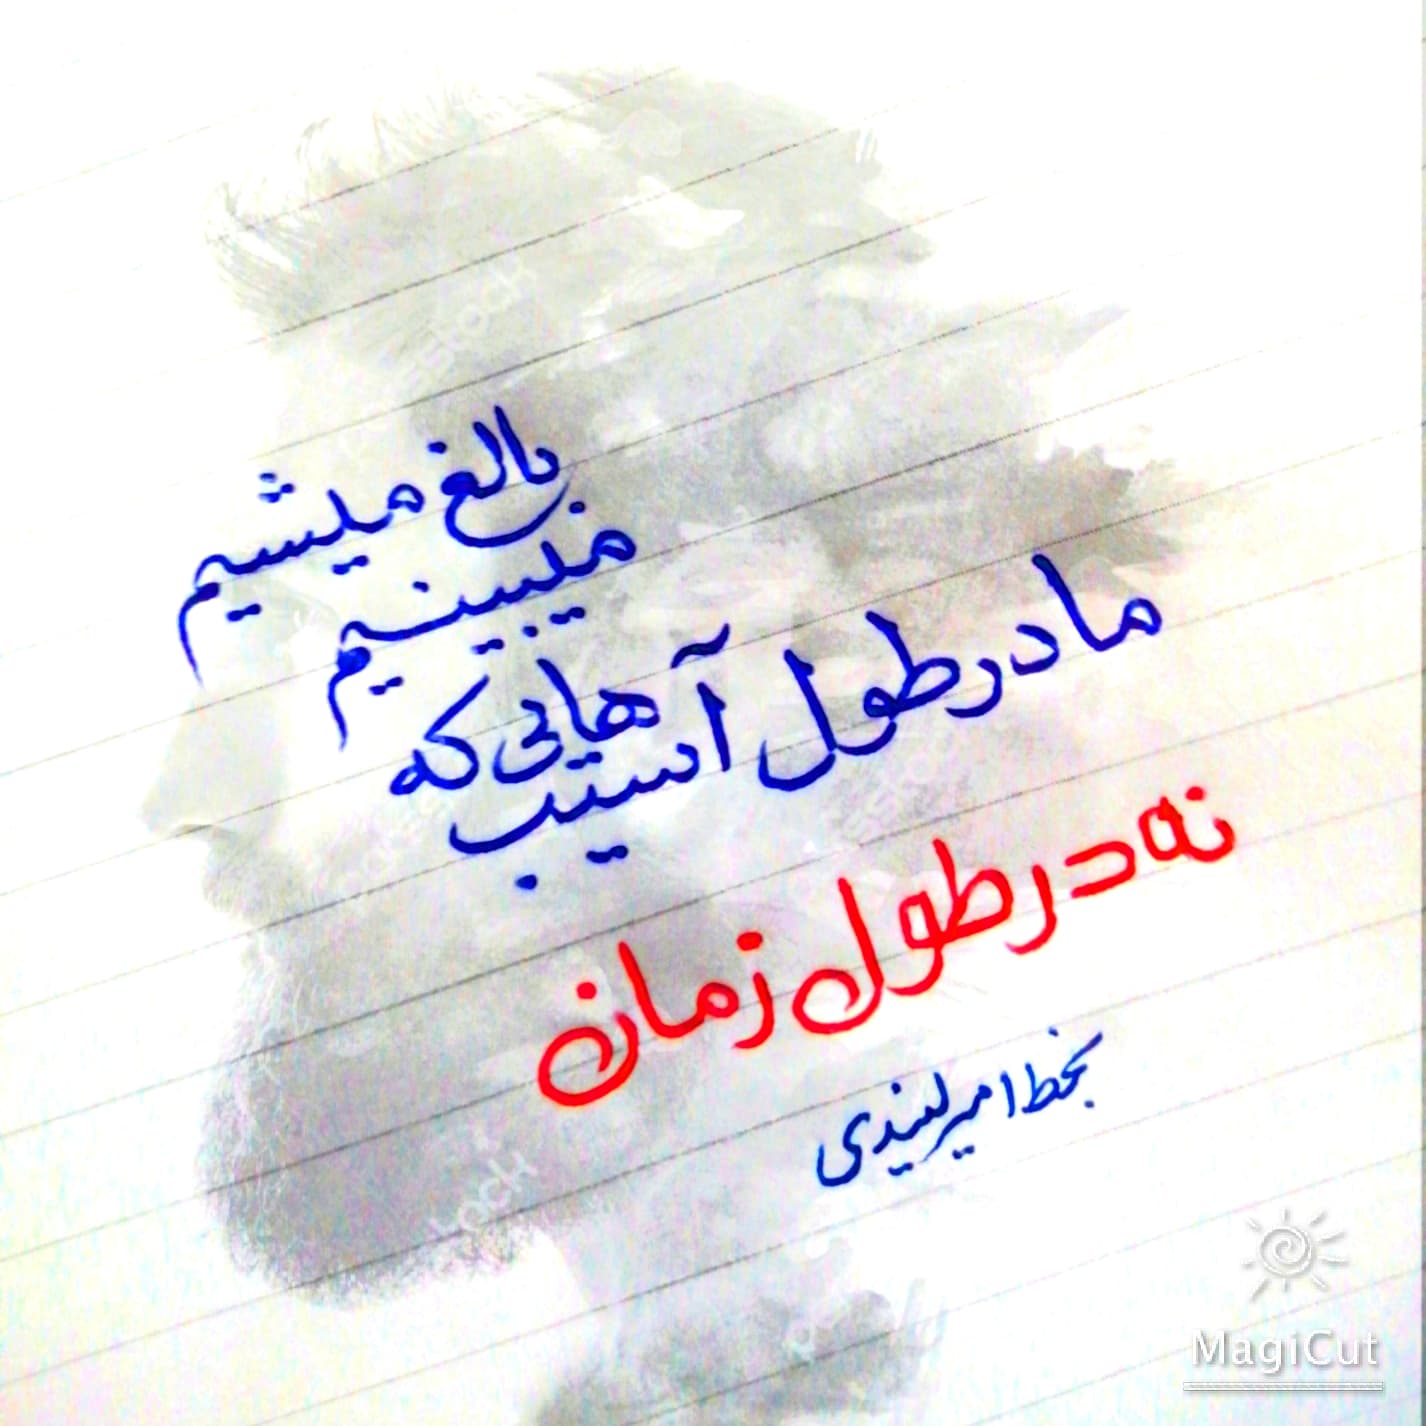 ما در طول آسیب هایی که میبینیم بالغ میشیم
نه در طول زمان
بخط امیر لیندی
MagiCut